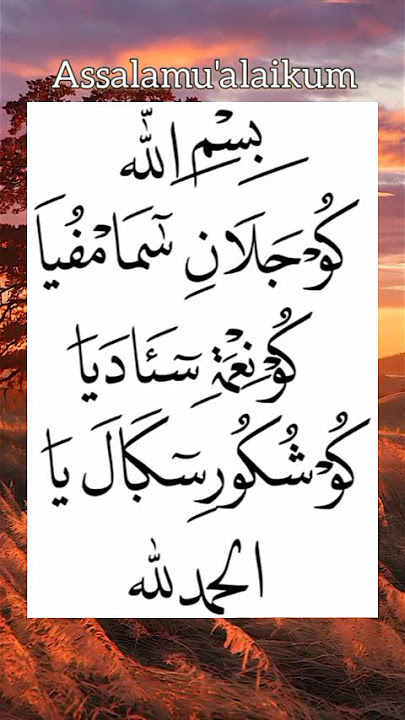 Assalamu'alaikum
بِسْمِ اللّٰه
كُوْجَلَانِ سٓمَامْفُيَاَ
كُوْنِعْمَةِ سِٓئَادَيَا
كُوْشُكُوْرِ سِٓكَالَ يَا
الحمد لله